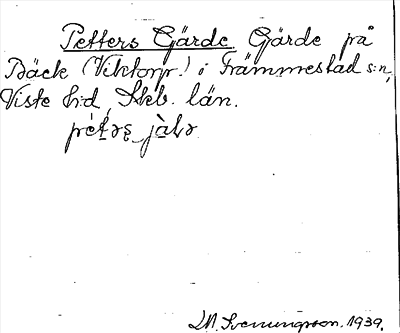 Petters Gärde. Gärde på
Bäck (Viktorp.) i Främmestad s:n,
Viste h:d, Skb. län.
Svenungsson. 1939.